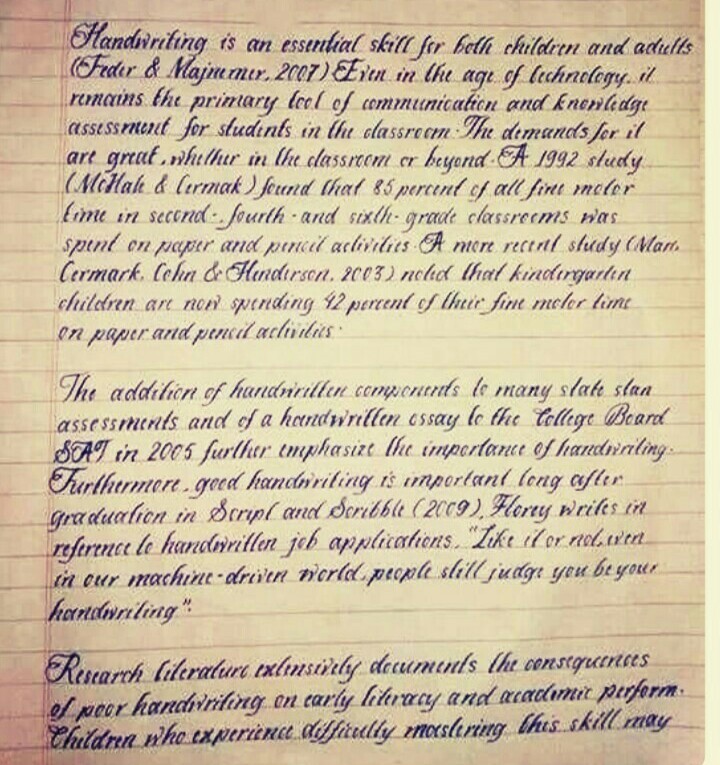 Handwriting is an essential skill for both children and adults
(Feder & Majnemer, 2007) Even in the age of technology, it
remains the primary tool of communication and knowledge
assessment for students in the classroom. The demands for it
are great, whether in the classroom or beyond. A 1992 study
(McHale & Cermak) found that 85 percent of all fine motor
time in second-, fourth- and sixth-grade classrooms was
spent on paper and pencil activities. A more recent study (Marr,
Cermark, Cohn & Henderson, 2003) noted that kindergarten
children are now spending 42 percent of their fine motor time
on paper and pencil activities.
The addition of handwritten components to many state stan
assessments and of a handwritten essay to the College Board
SAT in 2005 further emphasize the importance of handwriting.
Furthermore, good handwriting is important long after
graduation in Script and Scribble (2009), Florey writes in
reference to handwritten job applications, "Like it or not, even
in our machine-driven world, people still judge you be your
handwriting".
Research literature extensively documents the consequences
of poor handwriting on early literacy and academic perform.
Children who experience difficully mastering this skill may